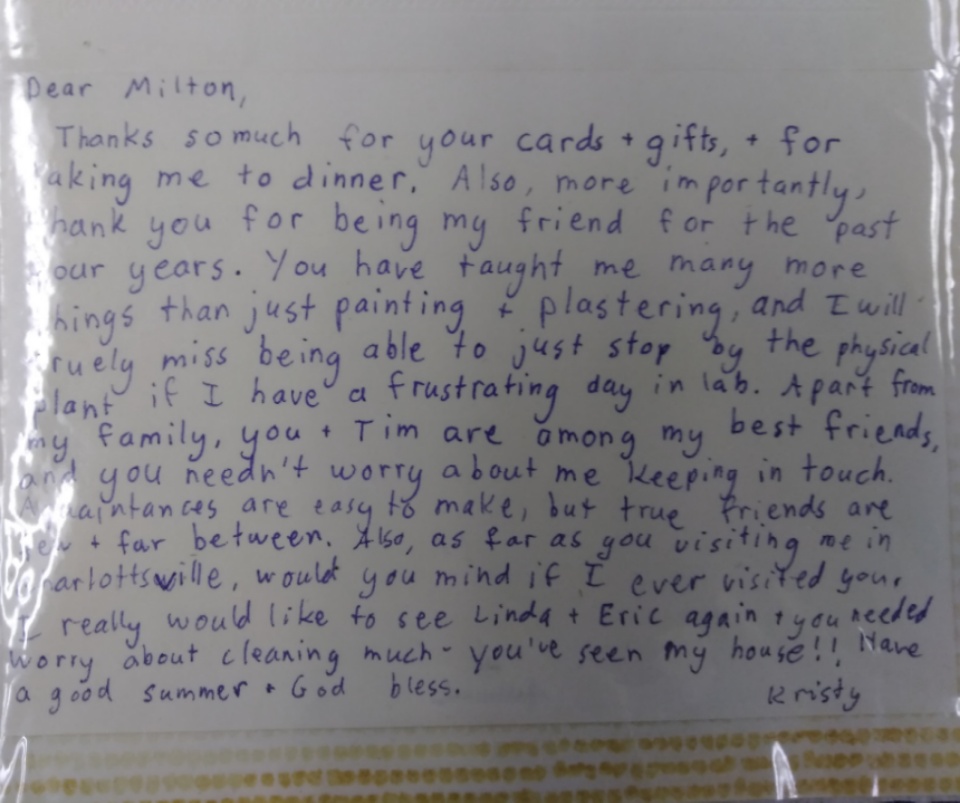 Dear Milton,
Thanks so much for your cards + gifts, + for
taking me to dinner. Also, more importantly,
thank you for being my friend for the past
four years. You have taught me many more
things than just painting + plastering, and I will
truely miss being able to just stop by the physical
plant if I have a frustrating day in lab. Apart from
my family, you + Tim are among my best friends,
and you needn't worry about me keeping in touch.
Aquaintances are easy to make, but true friends are
few + far between. Also, as far as you visiting me in
Charlottsville, would you mind if I ever visited you.
I really would like to see Linda + Eric again + you needed
worry about cleaning much - you've seen my house!! Have
a good summer + God bless.
Kristy